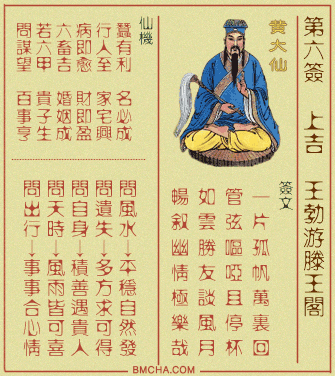 第六簽 上吉 王勃游滕王閣
黃大仙
簽文
一片孤帆萬裏回
管弦嘔啞且停杯
如雲勝友談風月
暢叙幽情極樂哉
仙機
蠶有利 名必成
行人至 家宅興
病即愈 財即盈
六畜吉 婚姻成
若六甲 貴子生
問謀望 百事亨
問風水↓平穩自然發
問遺失↓多方求可得
問自身↓積善遇貴人
問天時↓風雨皆可喜
問出行↓事事合心情
BMCHA.COM